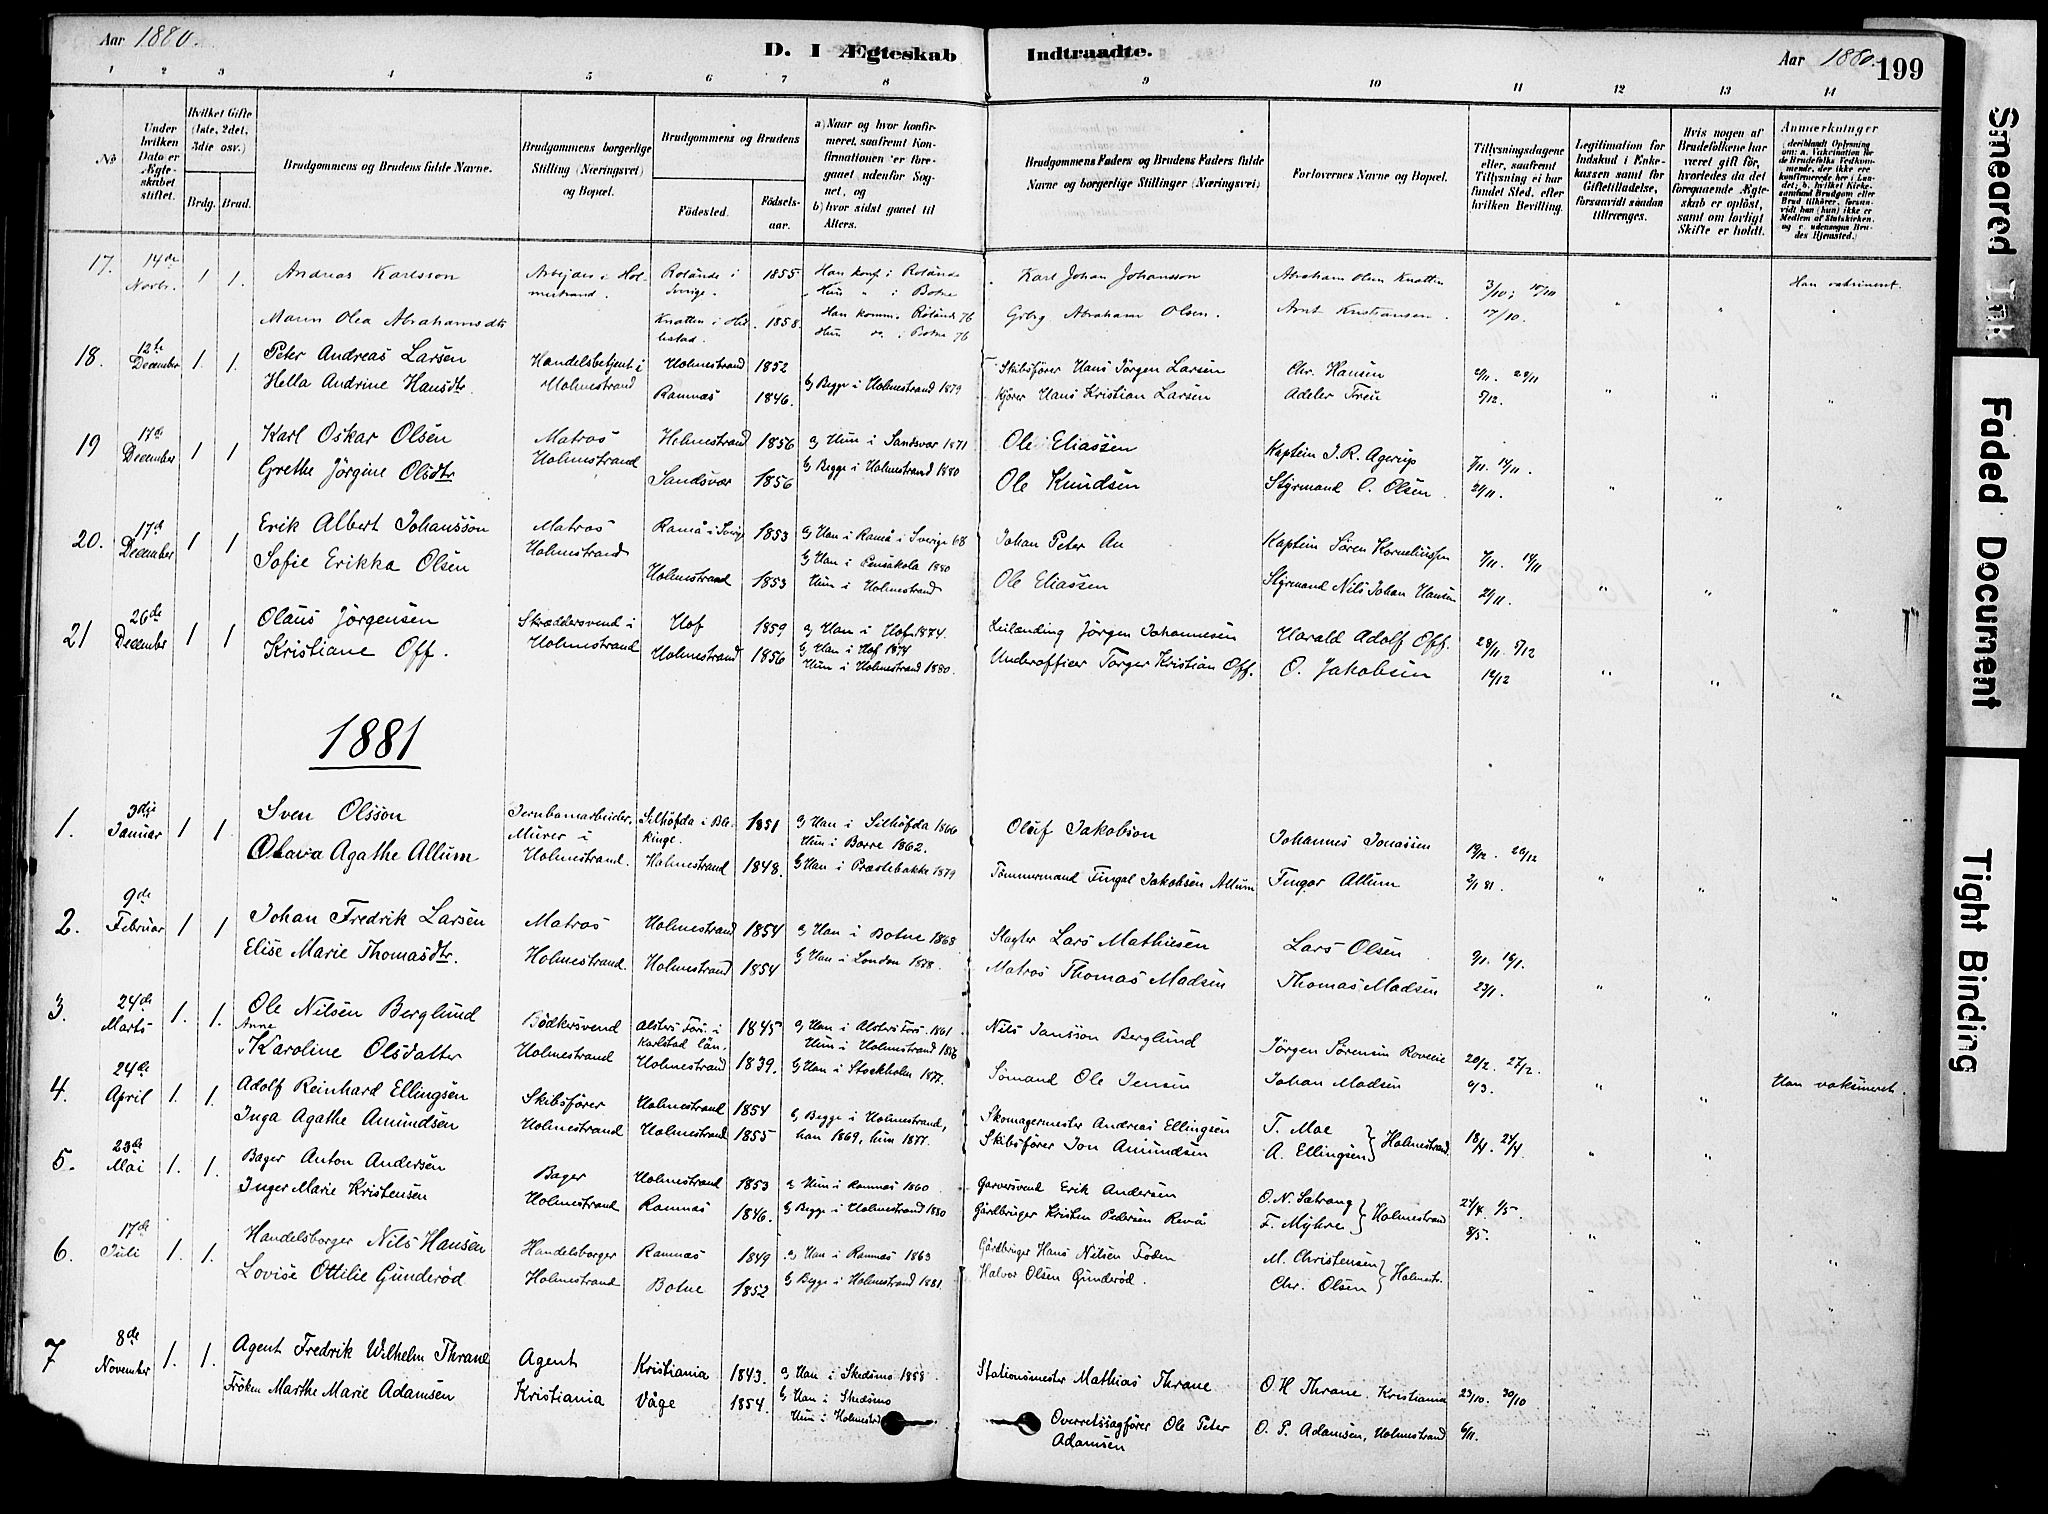 Aar 1880.
D. I Ægteskab Indtraadte.
Aar 1880.
199
1 2 3 4 5 6 7 8 9 10 11 12 13 14
No
Under hvilken Dato er Ægteskabet stiftet.
Hvilket Gifte (1ste, 2det, 3die osv.)
Brdg. Brud.
Brudgommens og Brudens fulde Navne.
Brudgommens borgerlige Stilling (Næringsvei) og Bopæl.
Brudgommens og Brudens
Fødested.
Fødselsaar.
a) Naar og hvor konfirmeret, saafremt Konfirmationen er foregaaet udenfor Sognet, og
b) hvor sidst gaaet til Alters.
Brudgommens Faders og Brudens Faders fulde Navne og borgerlige Stillinger (Næringsvei)
Forlovernes Navne og Bopæl.
Tillysningsdagene eller, saafremt Tillysning ei har fundet Sted, efter hvilken Bevilling.
Legitimation for Indskud i Enkekassen samt for Giftetilladelse, forsaavidt saadan tiltrænges.
Hvis nogen af Brudefolkene har været gift før, hvorledes da det foregaaende Ægteskab er opløst, samt om lovligt Skifte er holdt.
Anmerkninger
17. 14de Novbr. 1 1. Andreas Karlsson Arbejder i Holmestrand. Rolånde i Sverige. 1855 Han konf. i Rolånda Hun " i Botne Karl Johan Johansson Abraham Olsen Knatten 3/10; 10/10 Han vakcineret.
Maren Olea Abrahamsdtr Knatten i Hillestad. 1858. Han komm. i Rolånda 76 Hun do i Botne 76 Grbrg Abraham Olsen. Arnt Kristiansen. 17/10.
18. 12te December 1. 1. Peter Andreas Larsen Handelsbetjent i Holmestrand Holmestrand 1852 Skibsfører Hans Jörgen Larsen Chr. Hansen 21/11. 28/11
Hella Andrine Hansdtr. Ramnæs 1846. b, Begge i Holmestrand 1879 Kjører Hans Kristian Larsen Adeler Treu 5/12.
19 17de December 1 1 Karl Oskar Olsen Matros Holmestrand 1856 a, Hun i Sandsvær 1871 Ole Eliassen Kaptein J. R. Agerup 7/11. 14/11.
Grethe Jörgine Olsdtr Holmestrand Sandsvær 1856 b, Begge i Holmestrand 1880 Ole Knudsen Styrmand O. Olsen. 21/11.
20. 17de December 1 1 Erik Albert Johansson Matros Ramå i Sverige 1853 a, Han i Ramå i Sverige 68 Johan Peter An Kaptein Sören Korneliussen 7/11. 14/11
Sofie Erikka Olsen Holmestrand Holmestrand 1853 b, Han i Pensakola 1880 Hun i Holmestrand Ole Eliassen Styrmand Nils Johan Hansen 21/11.
21 26de December 1 1 Olaus Jörgensen Skræddersvend i Holmestrand Hof 1859 a, Han i Hof 1874. Leilænding Jörgen Johannesen Harald Adolf Off. 28/11. 5/12
Kristiane Off. Holmestrand 1856 b, Han i Hof 1874 Hun i Holmestrand 1880. Underoffier Torger Kristian Off. O. Jakobsen 12/12
1881
1. 3die Januar 1 1. Sven Olsson Jernbanarbeider, Murer i Holmestrand. Silhöfda i Blekinge. 1851 a, Han i Silhöfda 1866 Hun i Borre 1862. Oluf Jakobson Johannes Jonassen 19/12. 26/12
Olava Agathe Allum Holmestrand 1848. b, Han i Præstebakke 1879 Tömmermand Fingal Jakobsen Allum Fingar Allum 2/1 81.
2. 9de Februar 1 1. Johan Fredrik Larsen Matros Holmestrand 1854 a, Han i Botne 1868 Slagter Lars Mathiesen Lars Olsen 9/1. 16/1.
Elise Marie Thomasdtr. Holmestrand. Holmestrand 1854 b, Han i London 1878. Matros Thomas Madsen Thomas Madsen 23/1.
3. 24de Marts 1. 1. Ole Nilsen Berglund Bödkersvend Alsters Förs. i Karlstad Län, 1845 a, Han i Alsters Förs. 1861. Hun i Holmestrand 1876 Nils Jansson Berglund Jörgen Sörensen Roverie 20/2. 27/2.
Anne Karoline Olsdatter Holmestrand Holmestrand 1839. b, Han i Stockholm 1877. Sömand Ole Jensen Johan Madsen 6/3. Han vaksineret.
4. 24de April 1. 1. Adolf Reinhard Ellingsen Skibsfører Holmestrand 1854 b, Begge i Holmestrand, han 1869, hun 1877. Skomagermester Andreas Ellingsen T. Moe Holmestrand 18/4. 24/4
Inga Agathe Amundsen Holmestrand Holmestrand 1855 Skibsfører Jon Amundsen A. Ellingsen
5. 23de Mai 1. 1. Bager Anton Andersen Bager Holmestrand 1853 a, Hun i Ramnæs 1860 Garversvend Erik Andersen O. N. Sætrang Holmestrand 24/4. 1/5.
Inger Marie Kristensen Holmestrand Ramnæs 1846. b, Begge i Holmestrand 1880 Gårdbruger Kristen Pedersen Revå F. Myhre 8/5.
6. 17de Juli 1. 1. Handelsborger Nils Hansen Handelsborger Ramnæs 1849 a, Han i Ramnæs 1863 Gårdbruger Hans Nilsen Foden M. Christensen Holmestr.
Lovise Ottilie Gunderöd Holmestrand Botne 1852 b, Begge i Holmestrand 1881. Halvor Olsen Gunderöd. Chr. Olsen
7 8de November 1. 1. Agent Fredrik Wilhelm Thrane Agent Kristiania 1843. a, Han i Skedsmo 1858. Stationsmester Mathias Thrane O. H. Thrane, Kristiania 23/10. 30/10
Fröken Marthe Marie Adamsen Kristiania Våge 1854. b, Han i Skedsmo Hun i Holmestrd Overretssagfører Ole Peter Adamsen O. P. Adamsen, Holmestrand 6/11.
Smeared Ink
Faded Document
Tight Binding